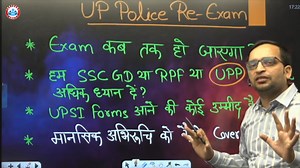 UP Police Re-Exam
* Exam कब तक हो जाएगा?
* हम SSC GD या RPF या UPP
अधिक ध्यान दें?
* UPSI Forms आने की कोई उम्मीद है
* मानसिक अभिरूचि को Cover
17:22